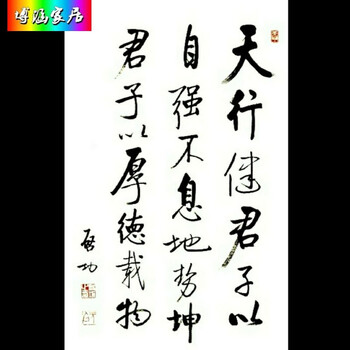 博涵家居
天行健君子以
自强不息地势坤
君子以厚德载物
启功